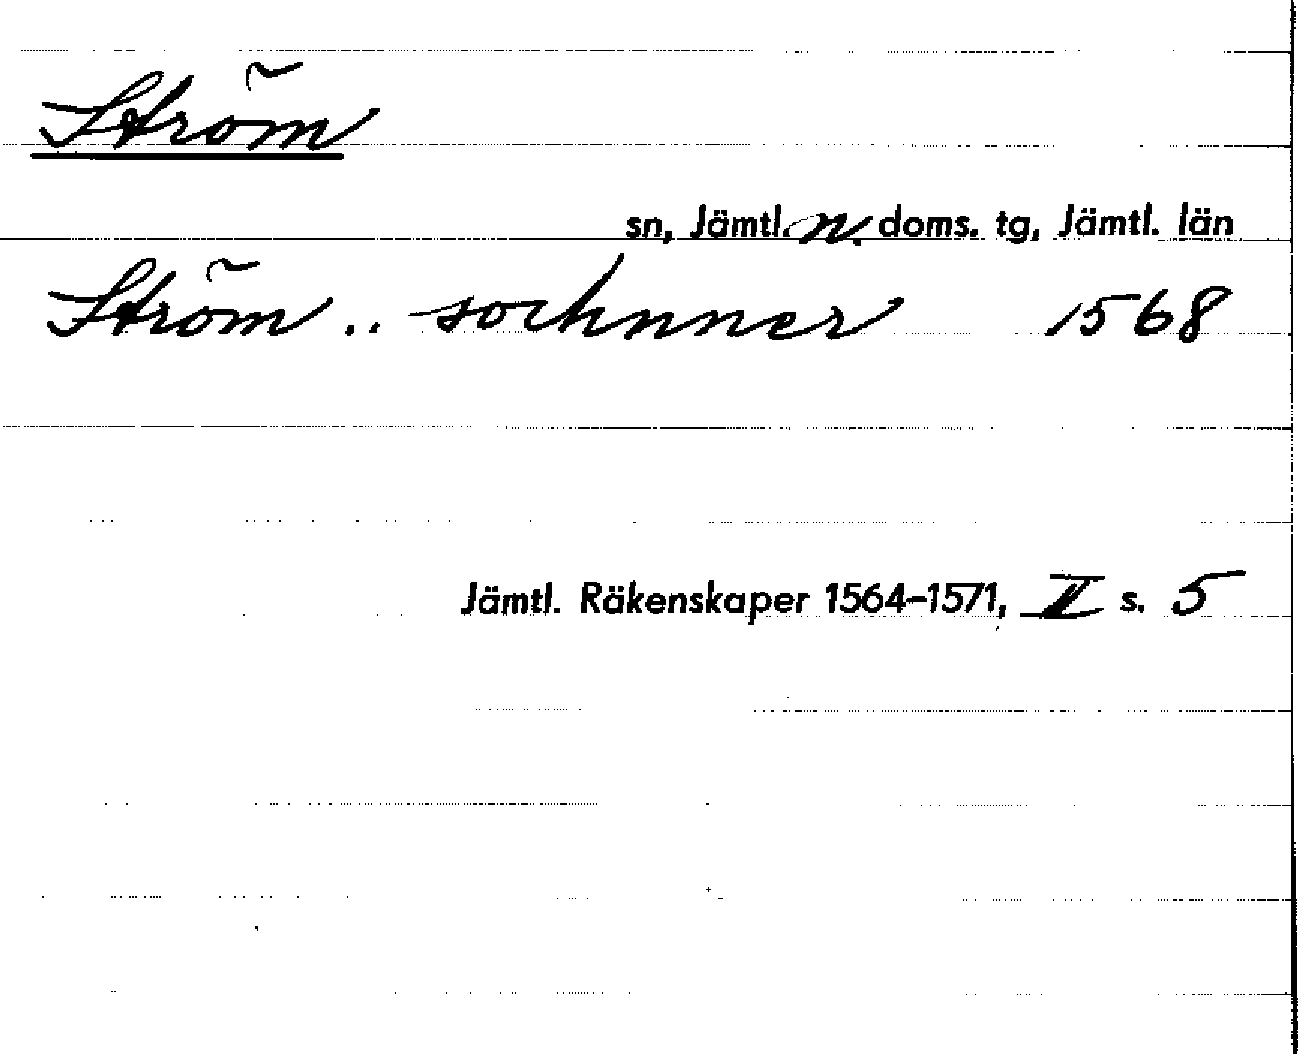 Ström
sn, Jämtl. n. doms. tg, Jämtl. län
Ström .. sochnner 1568
Jämtl. Räkenskaper 1564-1571, II s. 5